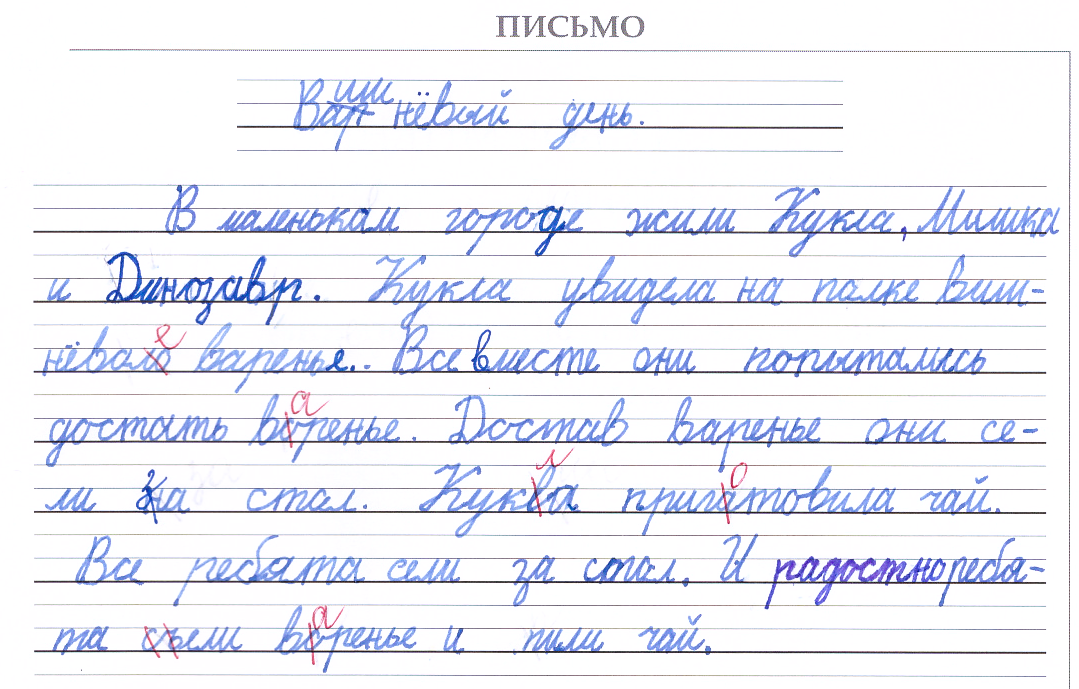 ПИСЬМО
Вишнёвый день.
В маленьком городе жили Кукла, Мишка
и Динозавр. Кукла увидела на палке виш-
нёвое варенье. Все вместе они попытались
достать варенье. Достав варенье они се-
ли за стол. Кукла приготовила чай.
Все ребята сели за стол. И радостно ребя-
та ели варенье и пили чай.